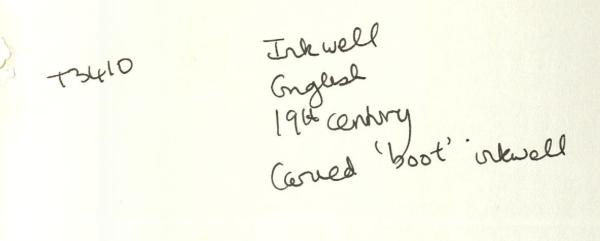 T3410
Inkwell
English
19th century
Carved 'boot' inkwell